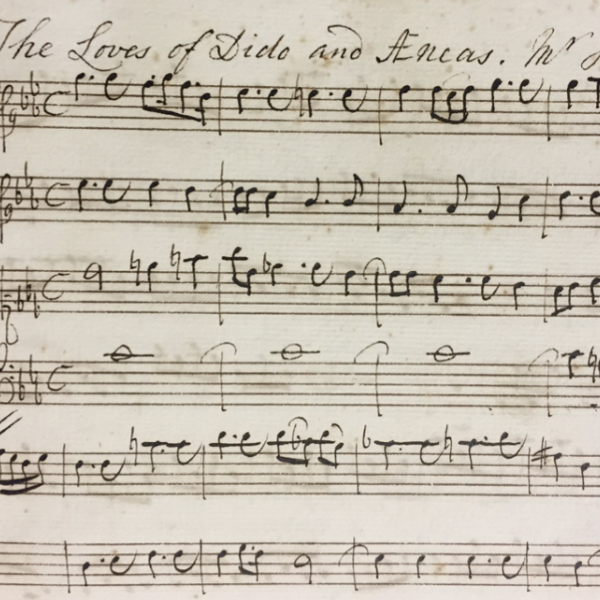 The Loves of Dido and Æneas. Mr